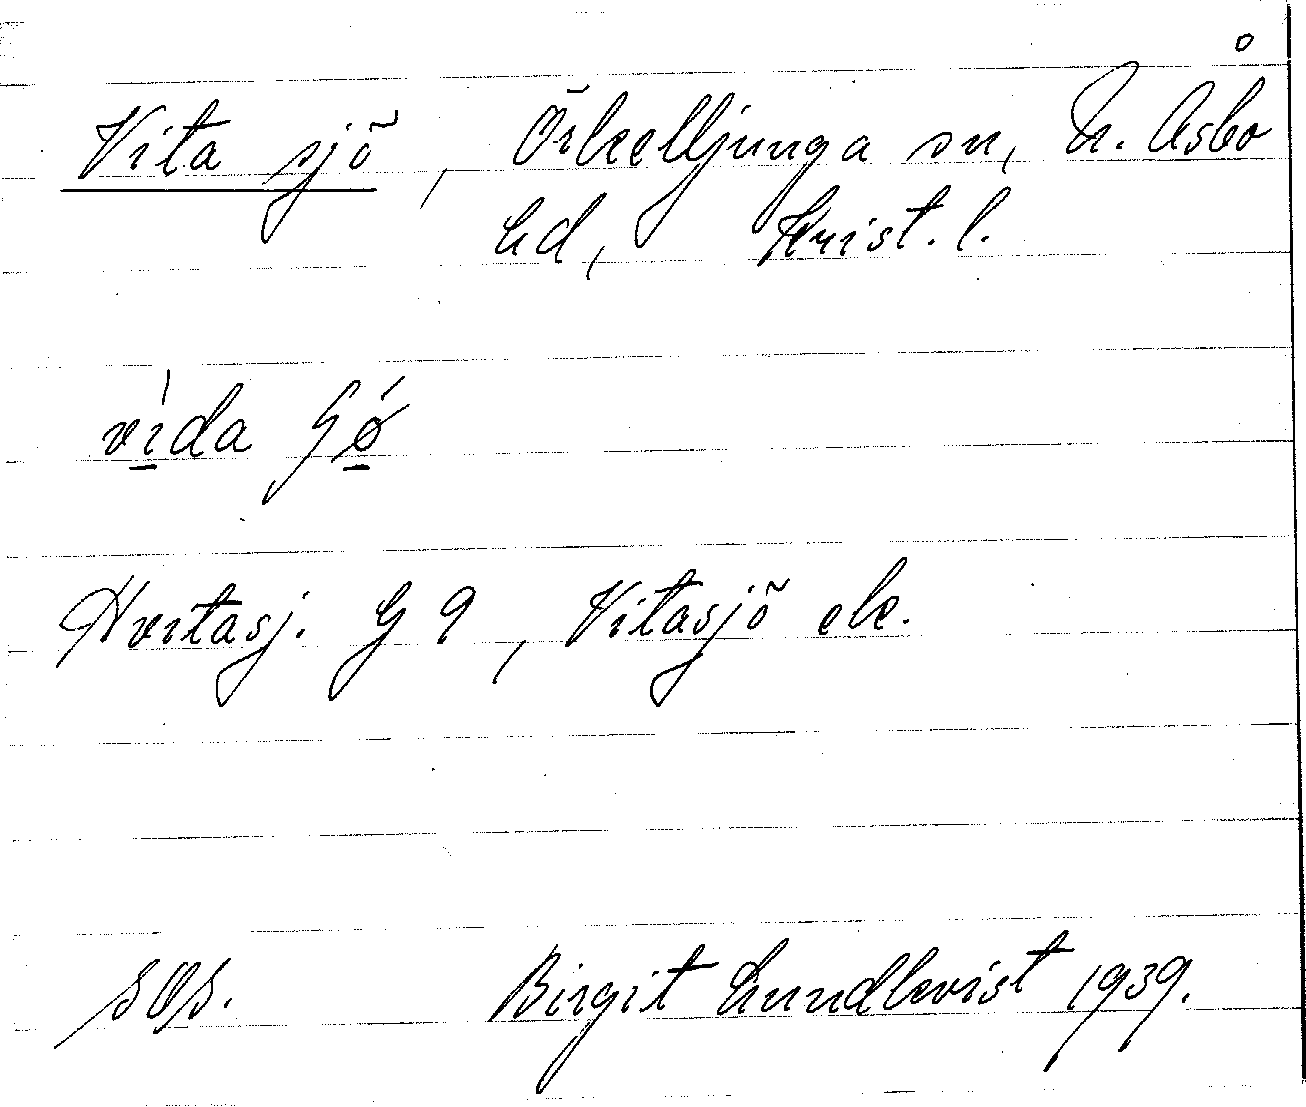 Vita sjö, Örkelljunga sn, N. Åsbo
hd, Krist. l.
vída
Hvitasj. G 9, Vitasjö ek.
SOS. Birgit Lundkvist 1939.